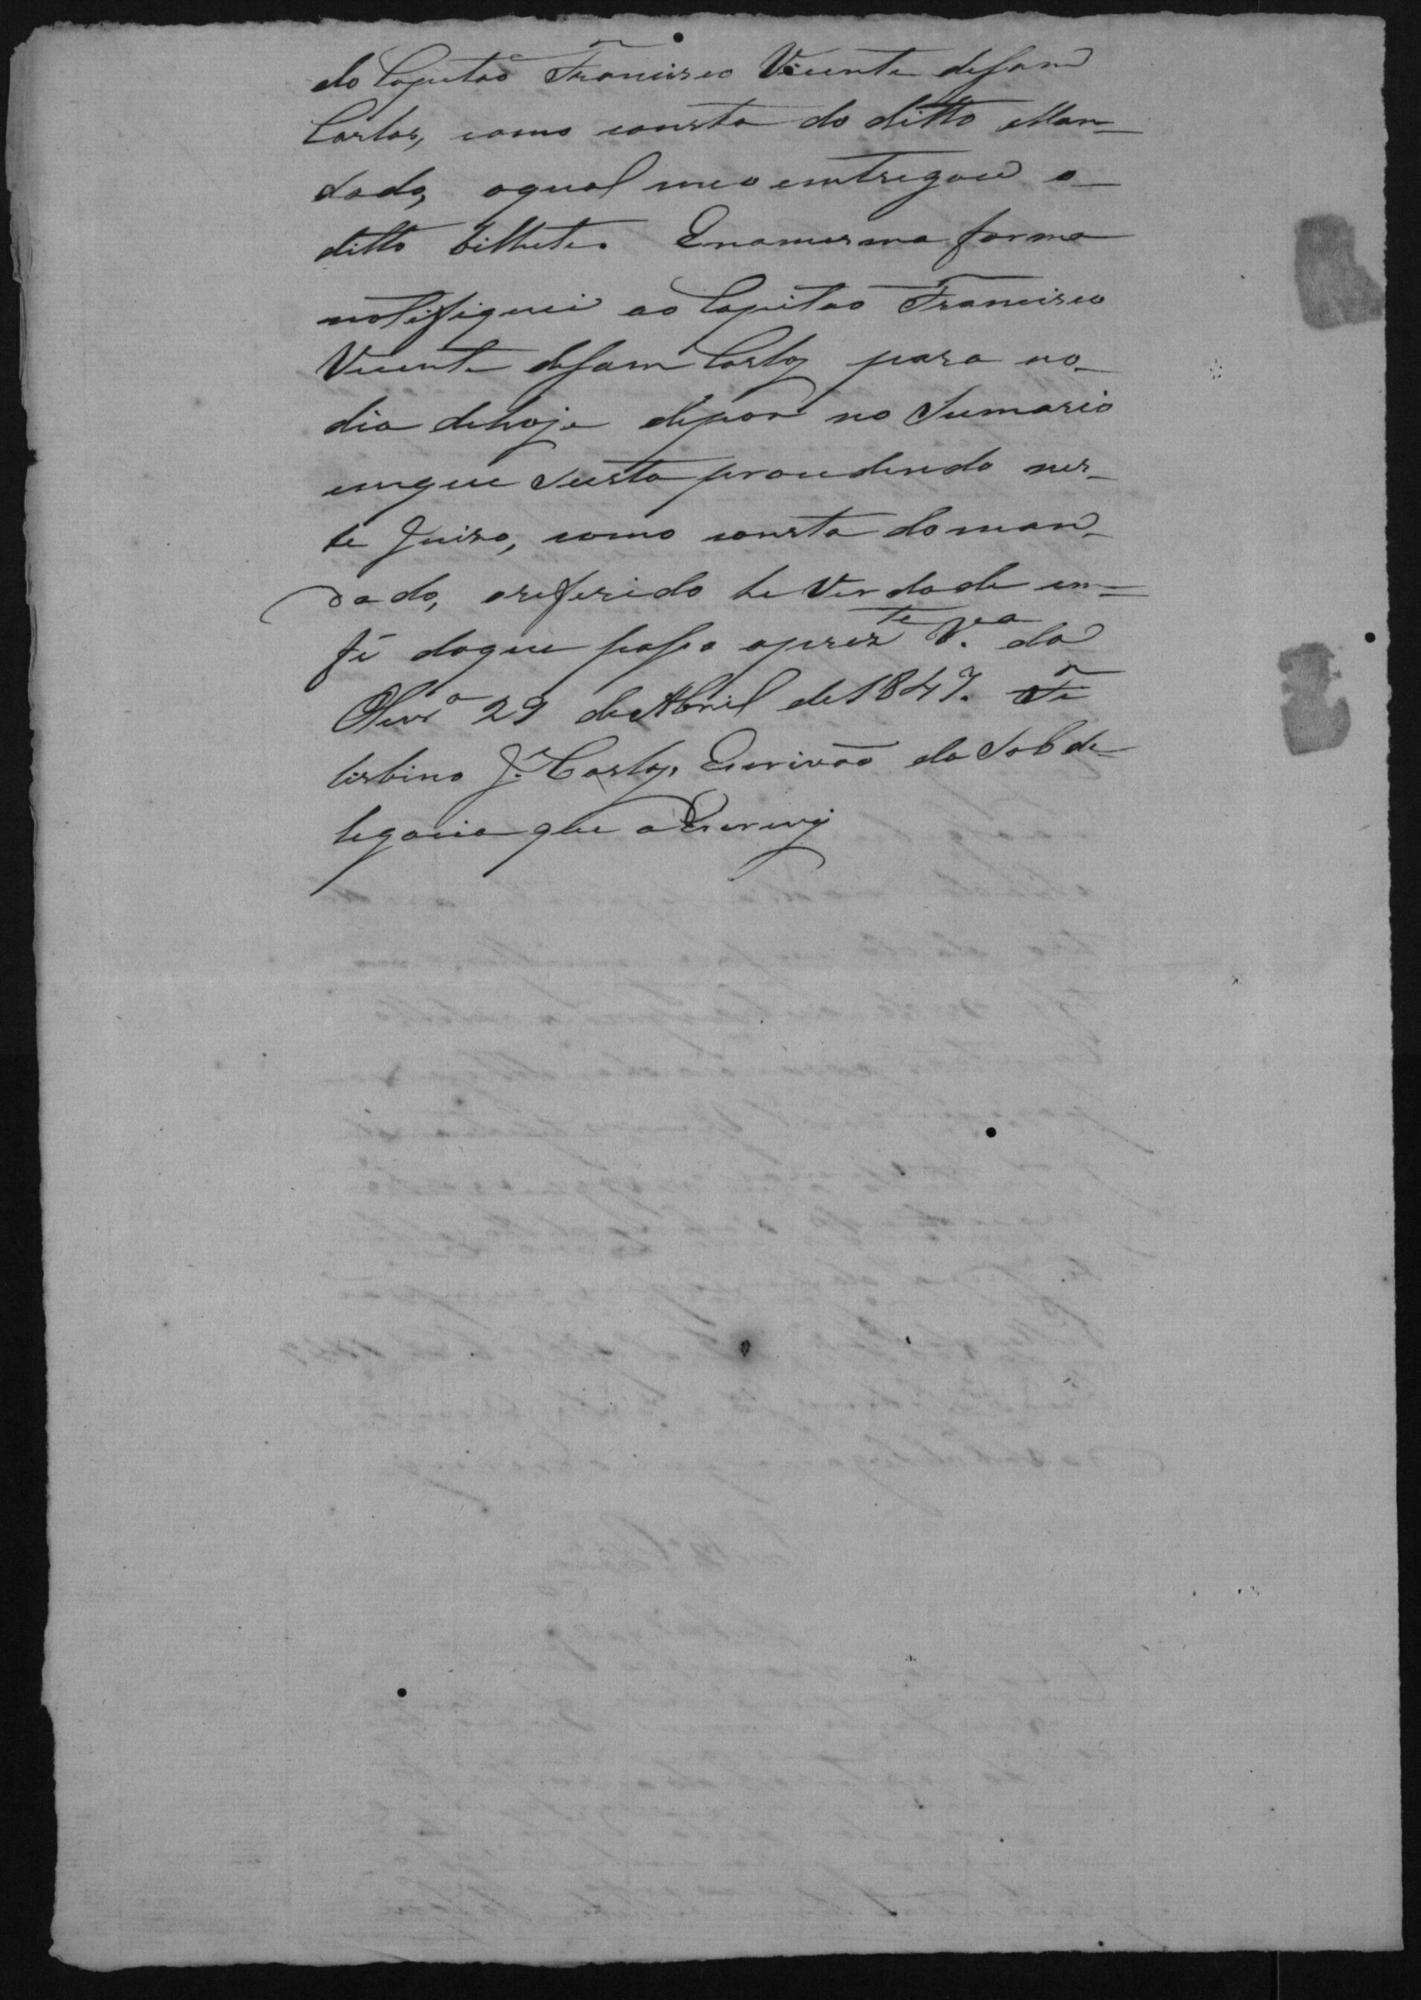 do Capitão Francisco Vicente desam
Carlos, como consta do ditto Man-
dado, oqual meo entregou o
ditto bilhete. Enamesma forma
notifiquei ao Capitão Francisco
Vicente desam Carlos para no
dia dehoje depor no Sumario
emque Sesta procedendo nes-
te Juiso, como consta doman-
dado, oreferido he Verdade em
fé doque passo aprezte Va da
Olivra 29 de Abril de 1847.
José Carlos Escrivão da Sobde-
legacia que o Escrevy